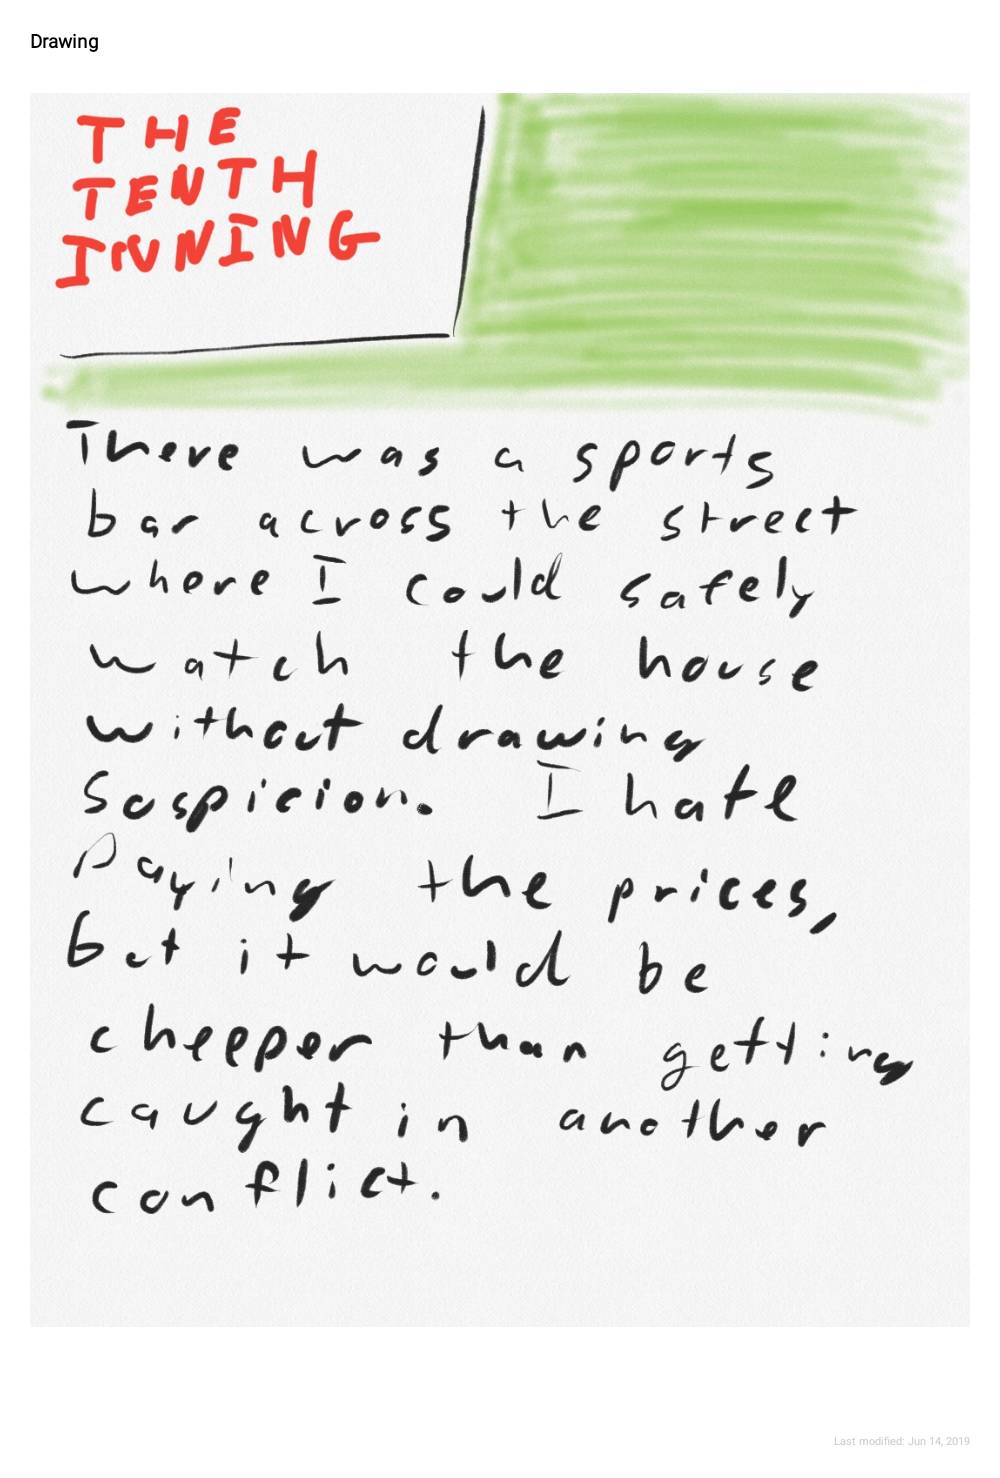 Drawing
THE
TENTH
INNING
There was a sports
bar across the street
where I could safely
watch the house
without drawing
suspicion. I hate
paying the prices,
but it would be
cheeper than getting
caught in another
conflict.
Last modified: Jun 14, 2019